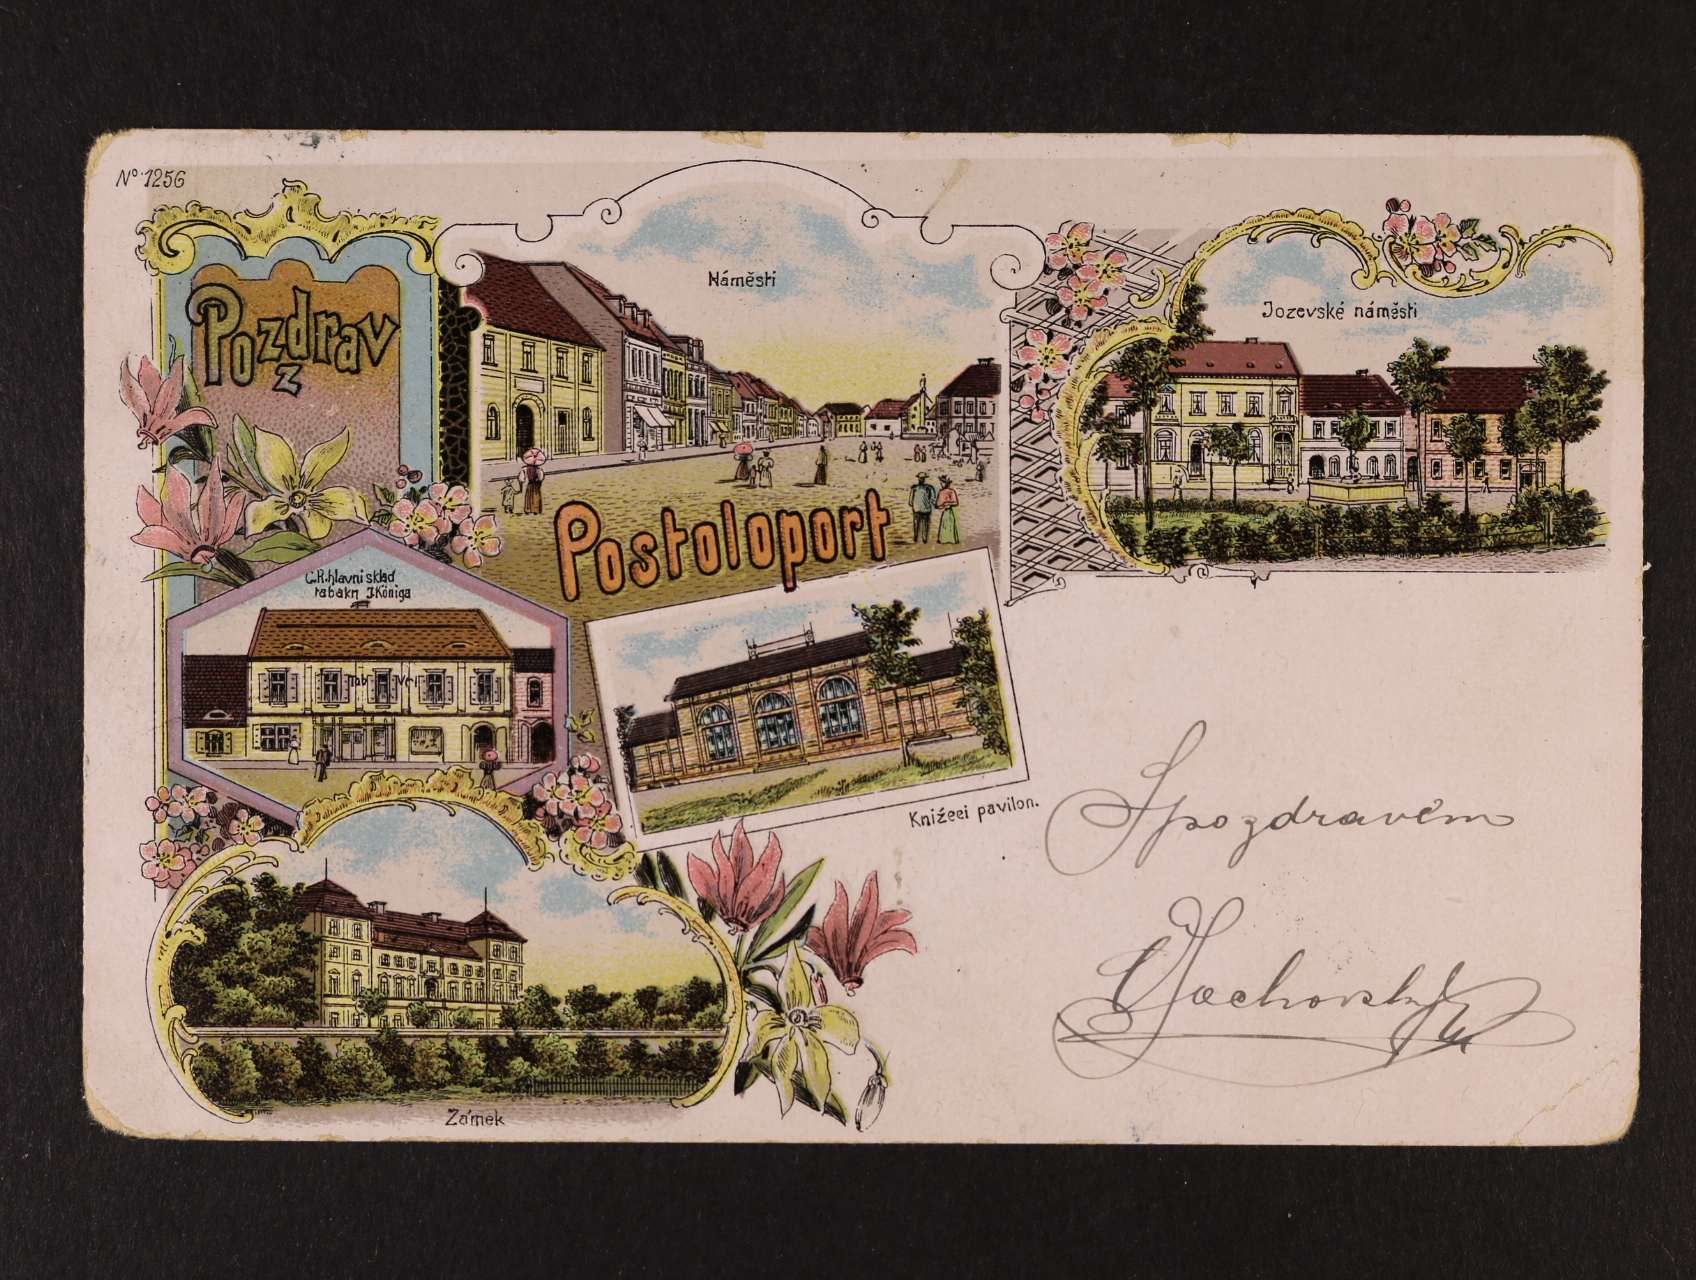 No. 1256
Pozdrav
z
Náměsti
Jozevské náměsti
Postoloport
C.R. hlavni sklad
tabakn J. Königa
Knižeei pavilon.
Zámek
S pozdravem